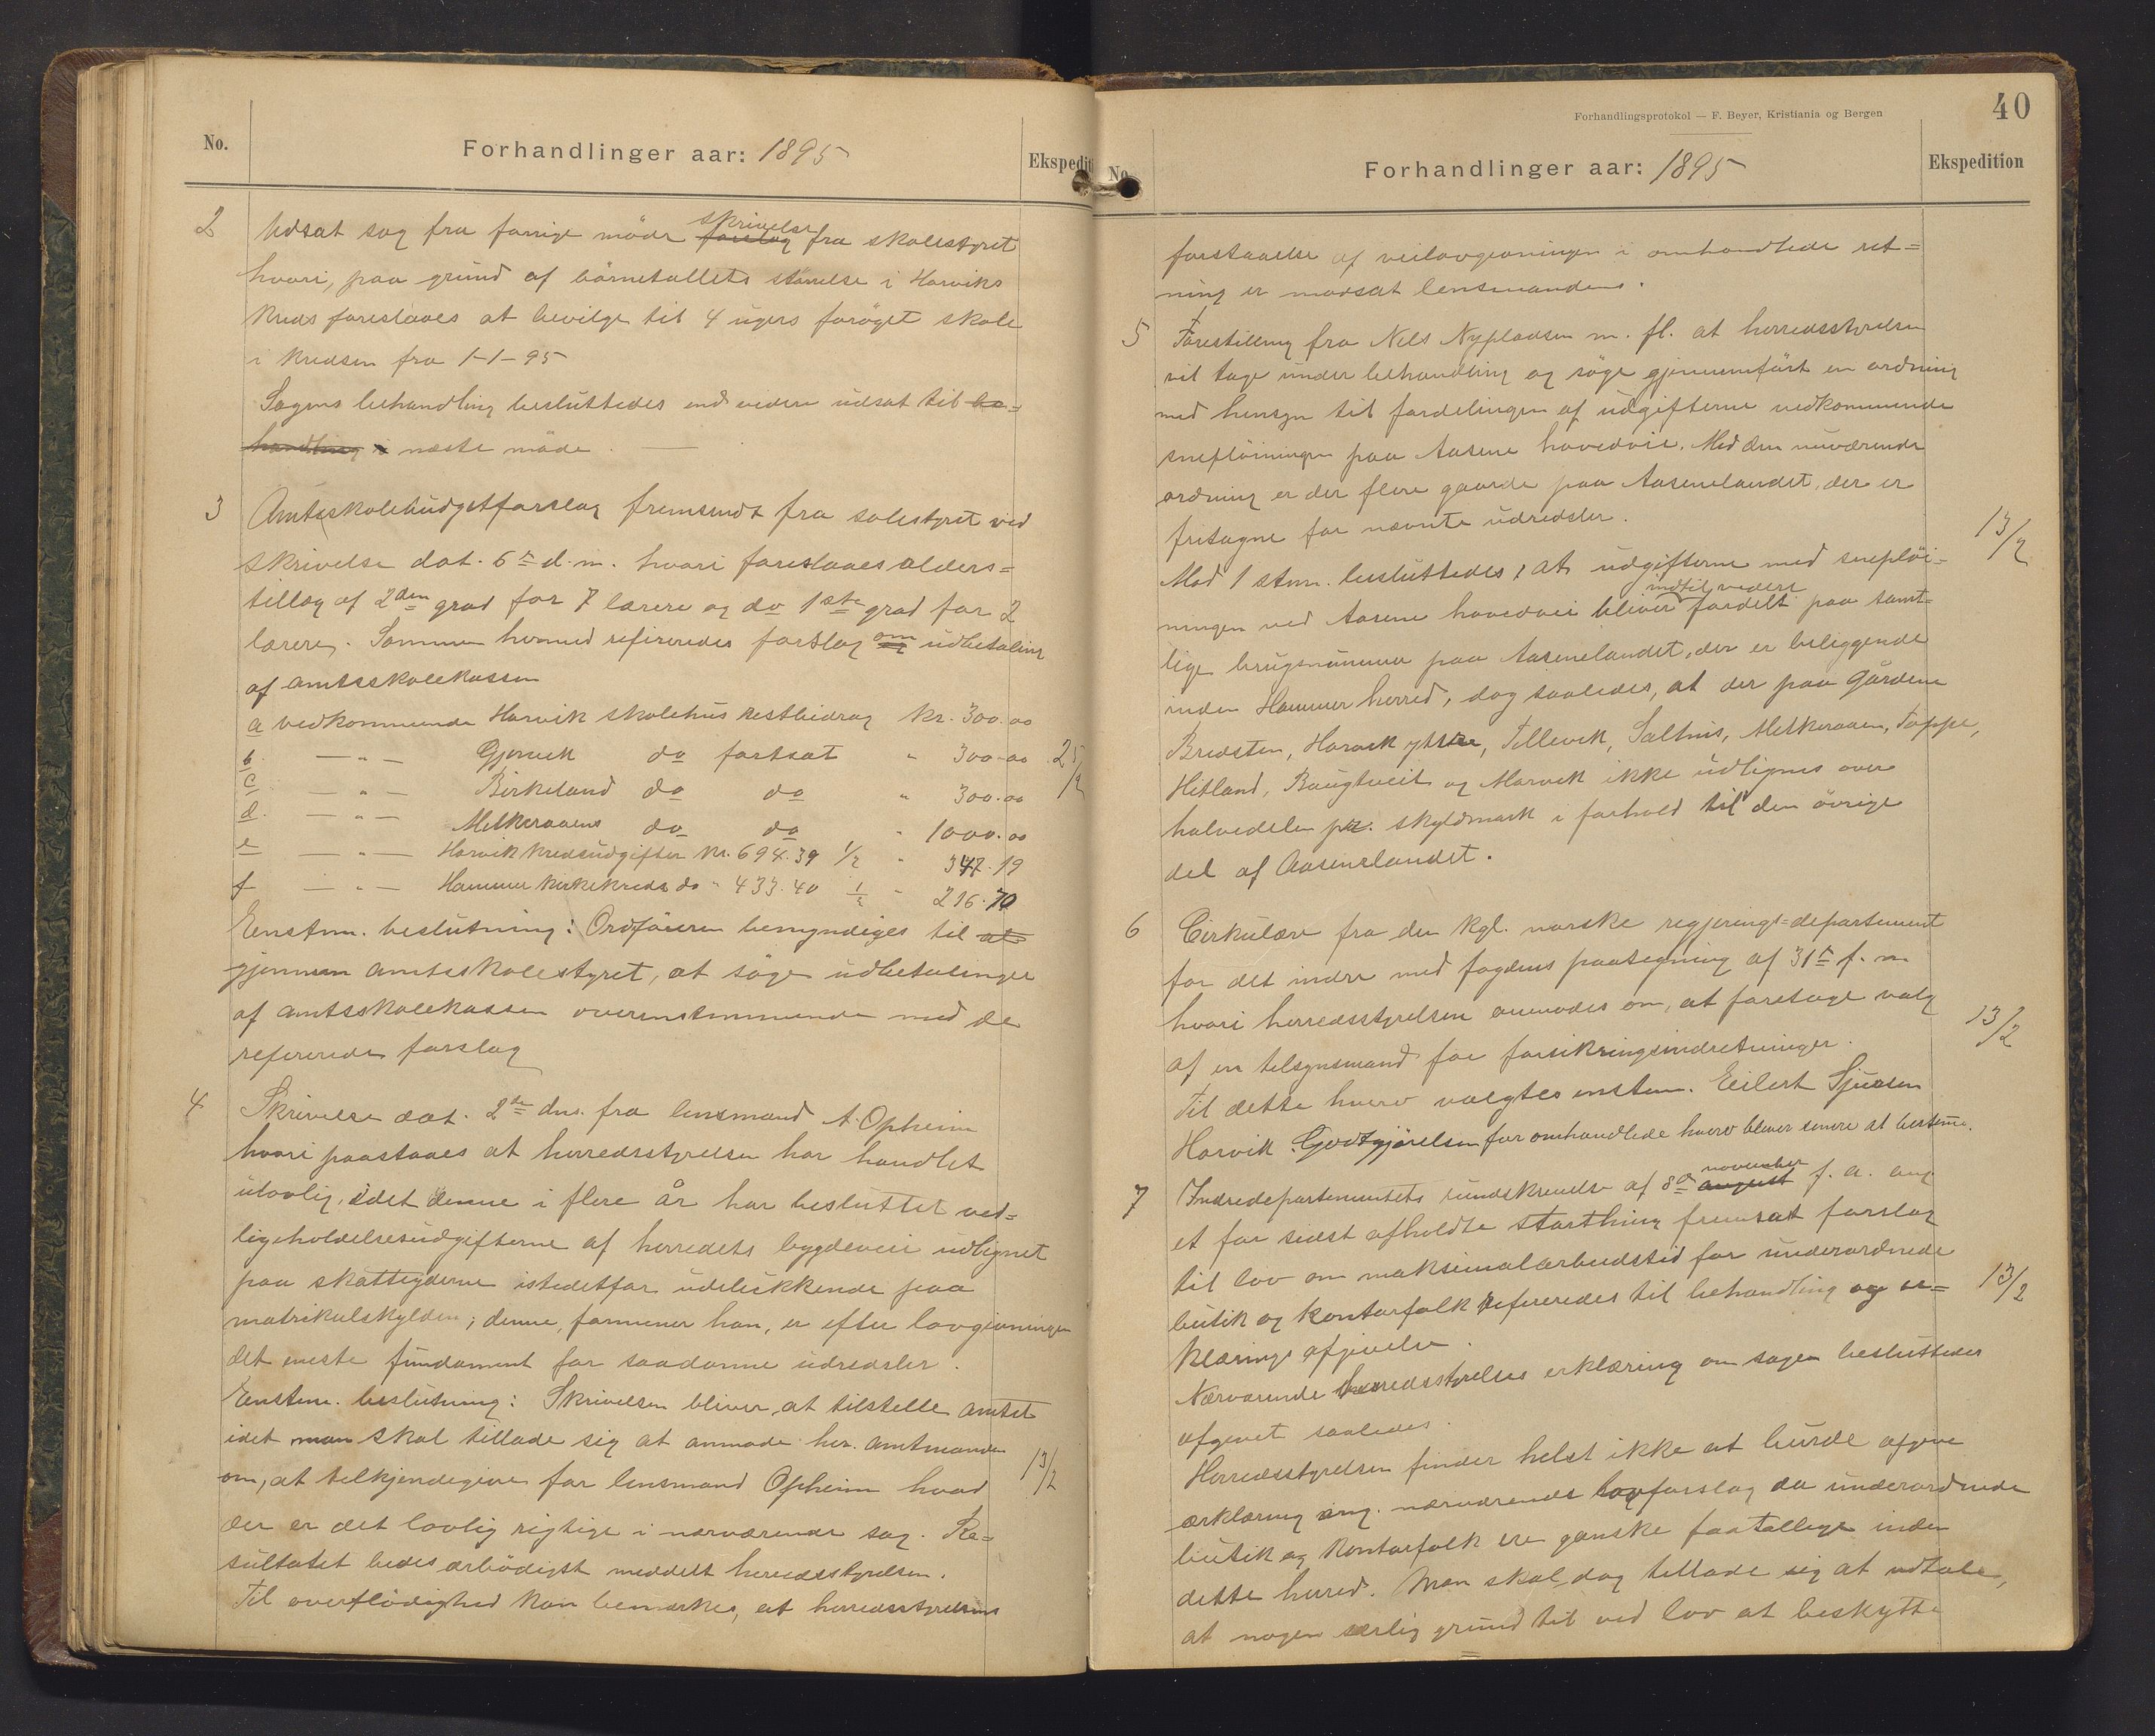 No.
Forhandlinger aar: 1895
Ekspedit
2
Udsat sag fra forrige möde forslag skrivelse fra skolestyret
hvori, paa grund af börnetallets störrelse i Horviks
kreds foreslaaes at bevilge til 4 ugers foröget skole
i kredsen fra 1-1-95
Sagens behandling besluttedes end videre udsat til be=
handling i næste möde.
3
Amtsskolebudgetforslag fremsendt fra solestyret ved
skrivelse dat. 6te d. m. hvori foreslaaes alders=
tillæg af 2den grad for 7 lærere og do 1ste grad for 2
lærere. Sammen hermed refereredes forslag om udbetaling
af amtsskolekassen
a vedkommende Horvik skolehus restbidrag kr. 300.00
b. — " — Gjervik do fortsat " 300.00
25/2
c — " — Birkeland do do " 300.00
d. — " — Melkeraaens do do " 1000.00
e — " — Horvik kredsudgifter kr. 694.39 1/2 " 347.19
f — " — Hammer kirkekreds do " 433.40 1/2 " 216.70
Enstem. beslutning: Ordföreren bemyndiges til at
gjennem amtsskolestyret, at söge udbetalinger
af amtsskolekassen overenstemmende med de
refererede forslag
4
Skrivelse dat. 2den dns. fra lensmand A. Opheim
hvori paastaaes at herredsstyrelsen har handlet
ulovlig, idet denne i flere år har besluttet ved=
ligeholdelsesudgifterne af herredets bygdeveie udlignet
paa skatteyderne istedetfor udelukkende paa
matrikulskylden; denne, formener han, er efter lovgivningen
det eneste fundament for saadanne udredsler.
Enstem. beslutning: Skrivelsen bliver at tilstelle amtet
idet man skal tillade sig at anmode hr. amtmanden
om, at tilkjendegive for lensmand Opheim hvad
13/2
der er det lovlig rigtige i nærværende sag. Re=
sultatet bedes ærbödigst meddelt herredsstyrelsen.
Til overflödighed kan bemærkes, at herredsstyrelsens
Forhandlingsprotokol — F. Beyer, Kristiania og Bergen
40
No.
Forhandlinger aar: 1895
Ekspedition
forstaaelse af veilovgivningen i omhandlede ret=
ning er modsat lensmandens.
5
Forestilling fra Nels Nypladsen m. fl. at herredsstyrelsen
vil tage under behandling og söge gjennemfört en ordning
med hensyn til fordelingen af udgifterne vedkommende
snepöiningen paa Aasene hovedvei. Med den nuværende
ordning er der flere gaarde paa Aasenelandet, der er
fritagne for nævnte udredsler.
13/2
Mod 1 stem. besluttedes, at udgifterne med snepöi=
ningen ved Aasene hovedvei bliver indtil videre fordelt paa samt=
lige brugsnummer paa Aasenelandet, der er beliggende
inden Hammer herred, dog saaledes, at der paa gårdene
Bredsten, Horvik ytre, Tellevik, Saltnis, Melkeraaen, Toppe,
Hitland, Baugtveit og Morvik ikke udlignes over
halvedelen pr. skyldmark i forhold til den övrige
del af Aasenelandet.
6
Cirkulære fra den kgl. norske regjerings=departement
for det indre med fogdens paategning af 31te f. m
hvori herredsstyrelsen anmodes om, at foretage valg
13/2
af en tilsynsmand for forsikringsindretninger.
Til dette hverv valgtes enstem. Eilert Sjursen
Horvik. Godtgjörelsen for omhandlede hverv bliver senere at besteme.
7
Indredepartementets rundskrivelse af 8de august november f. a. ang
et for sidst afholdte storthing fremsat forslag
til lov om maksimalarbeidstid for underordnede
13/2
butik og kontorfolk refereredes til behandling og er=
klærings afgivelse.
Nærværende herredsstyrelses erklæring om sagen besluttedes
afgivet saaledes.
Herredsstyrelsen finder helst ikke at burde afgive
erklæring ang. nærværende lovforslag da underordnede
butik og kontorfolk ere ganske faatallige inden
dette herred. Man skal dog tillade sig at udtale,
at nogen særlig grund til ved lov at beskytte